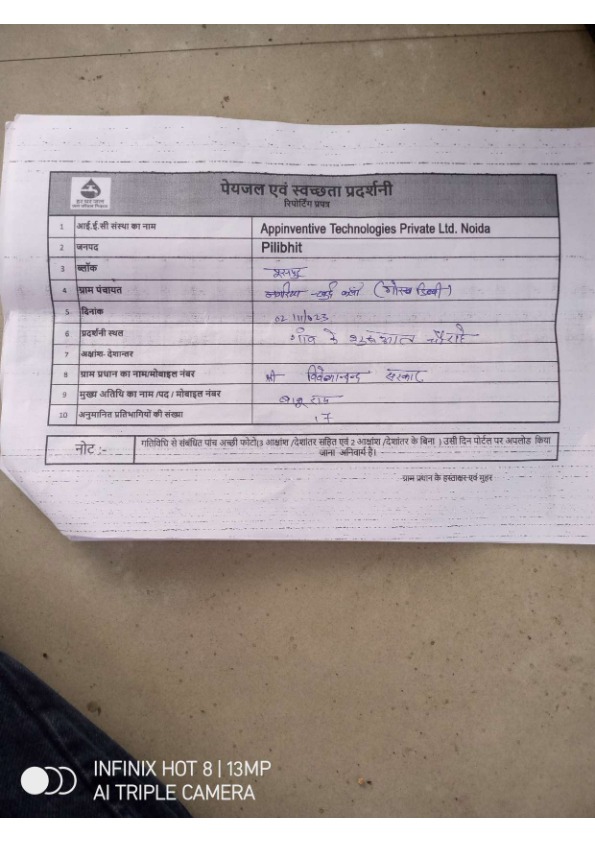 पेयजल एवं स्वच्छता प्रदर्शनी
रिपोर्टिंग प्रपत्र
हर घर जल
1 आई.ई.सी संस्था का नाम Appinventive Technologies Private Ltd. Noida
2 जनपद Pilibhit
3 ब्लॉक
4 ग्राम पंचायत
5 दिनांक 02/11/023
6 प्रदर्शनी स्थल गाँव के शुरुआत चौराहे
7 अक्षांश- देशान्तर
8 ग्राम प्रधान का नाम/मोबाइल नंबर श्री विवेकानन्द सरकार
9 मुख्य अतिथि का नाम /पद / मोबाइल नंबर बाबू राम
10 अनुमानित प्रतिभागियों की संख्या 17
नोट :- गतिविधि से संबंधित पांच अच्छी फोटो(3 आक्षांश /देशांतर सहित एवं 2 आक्षांश /देशांतर के बिना ) उसी दिन पोर्टल पर अपलोड किया
जाना अनिवार्य है।
ग्राम प्रधान के हस्ताक्षर एवं मुहर
INFINIX HOT 8 | 13MP
AI TRIPLE CAMERA